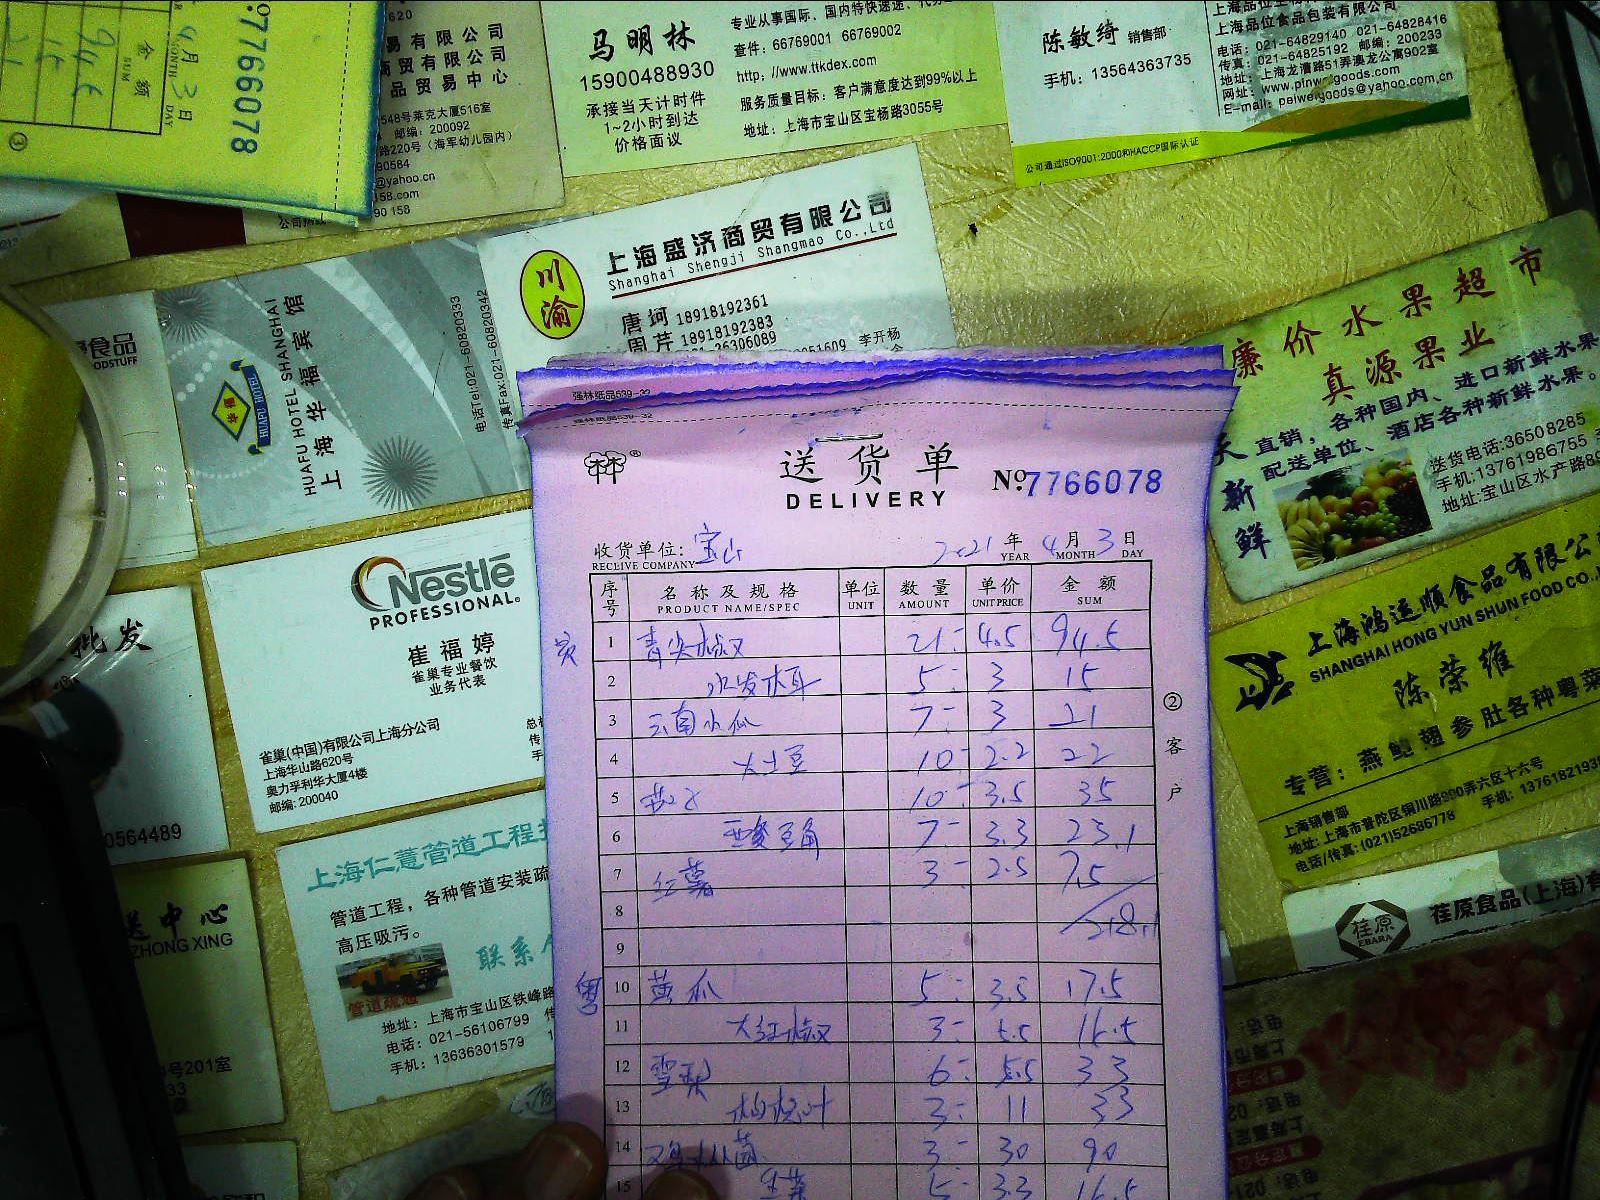 7766078
4月3日
MONTH DAY
金额
SUM
946
③
易有限公司
商贸有限公司
品贸易中心
548号莱克大厦516室
邮编：200092
路220号（海军幼儿园内）
90584
@yahoo.cn
158.com
90 158
马明林
15900488930
承接当天计时件
1~2小时到达
价格面议
专业从事国际、国内特快速递、
查件：66769001 66769002
http://www.ttkdex.com
服务质量目标：客户满意度达到99%以上
地址：上海市宝山区宝杨路3055号
陈敏绮 销售部
手机：13564363735
上海品位食品包装有限公司
电话：021-64829140 021-64828416
传真：021-64825192 邮编：200233
地址：上海龙漕路51弄澳龙公寓902室
网址：www.pinweigoods.com
E-mail：peiweigoods@yahoo.com.cn
公司通过ISO9001:2000和HACCP国际认证
食品
ODSTUFF
华福
HUAFU HOTEL
HUAFU HOTEL SHANGHAI
上海华福宾馆
电话Tel:021-60820333
传真Fax:021-60820342
川渝
上海盛济商贸有限公司
Shanghai Shengji Shangmao Co.,Ltd
唐珂 18918192361
周芹 18918192383
36306089
李开杨
廉价水果超市
真源果业
天天新鲜
直销，各种国内、进口新鲜水果
配送单位、酒店各种新鲜水果。
送货电话:36508285
手机:13761986755
地址:宝山区水产路
Nestlé
PROFESSIONAL.
崔福婷
雀巢专业餐饮
业务代表
雀巢(中国)有限公司上海分公司
上海华山路620号
奥力孚利华大厦4楼
邮编: 200040
批发
0564489
强林纸品539-32
强林纸品539-32
送货单
DELIVERY
№7766078
收货单位: 宝山
RECLIVE COMPANY
2021年4月3日
YEAR MONTH DAY
序号 名称及规格 单位 数量 单价 金额
PRODUCT NAME/SPEC UNIT AMOUNT UNIT PRICE SUM
1 青尖椒 21 4.5 94.5
2 水发木耳 5 3 15
3 云南小瓜 7 3 21
4 大土豆 10 2.2 22
5 茄子 10 3.5 35
6 酸豆角 7 3.3 23.1
7 红薯 3 2.5 7.5
8 218.1
9
粤
10 黄瓜 5 3.5 17.5
11 大红椒 3 5.5 16.5
12 雪梨 6 5.5 33
13 3 11 33
14 鸡丛菌 3 30 90
15 生菜 5 3.3 16.5
②客户
上海鸿运顺食品有限公
SHANGHAI HONG YUN SHUN FOOD CO.,
陈荣维
专营：燕鲍翅参肚各种粤菜
上海销售部
地址：上海市普陀区铜川路990弄六区十六号
电话/传真：(021)52686778 手机：1376182193
荏原
EBARA
荏原食品(上海)有
上海仁薏管道工程
管道工程，各种管道安装疏
高压吸污。
联系人
管道疏通
地址：上海市宝山区铁峰路
电话：021-56106799
手机：13636301579
送中心
ZHONG XING
号201室